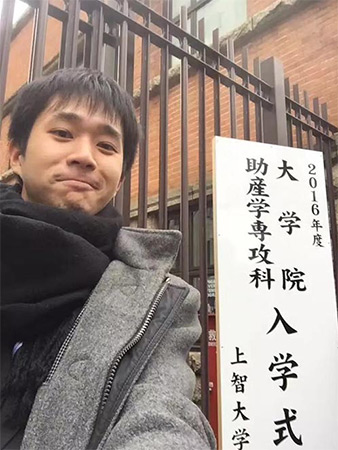 2016年度
大学院
助産学専攻科
入学式
上智大学